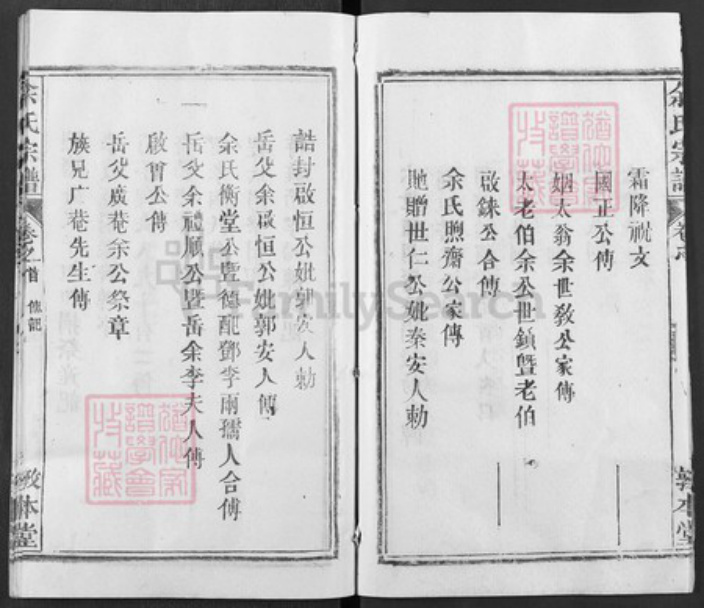 余氏宗譜
卷之首
敦本堂
霜降祝文
國正公傳
姻太翁余世敎公家傳
太老伯余公世鎮暨老伯
啟錬公合傳
余氏煦齋公家傳
貤贈世仁公妣秦安人勅
誥封啟恒公妣郭安人勅
岳父余啟恒公妣郭安人傳
余氏衡堂公暨德配鄧李兩孺人合傳
岳父余禮順公暨岳余李夫人傳
啟晋公傳
岳父廣菴余公祭章
族兄广菴先生傳
余氏宗譜
卷之首 傳記
敦本堂
FamilySearch